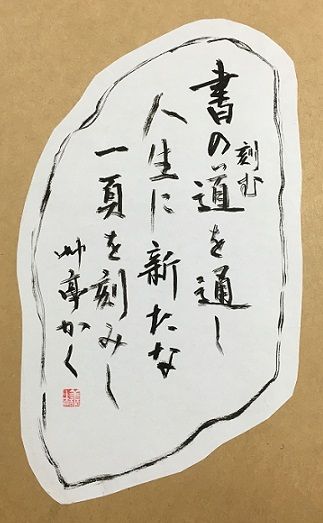 書の道を通し
刻む
人生に新たな
一頁を刻みし
艸亭かく